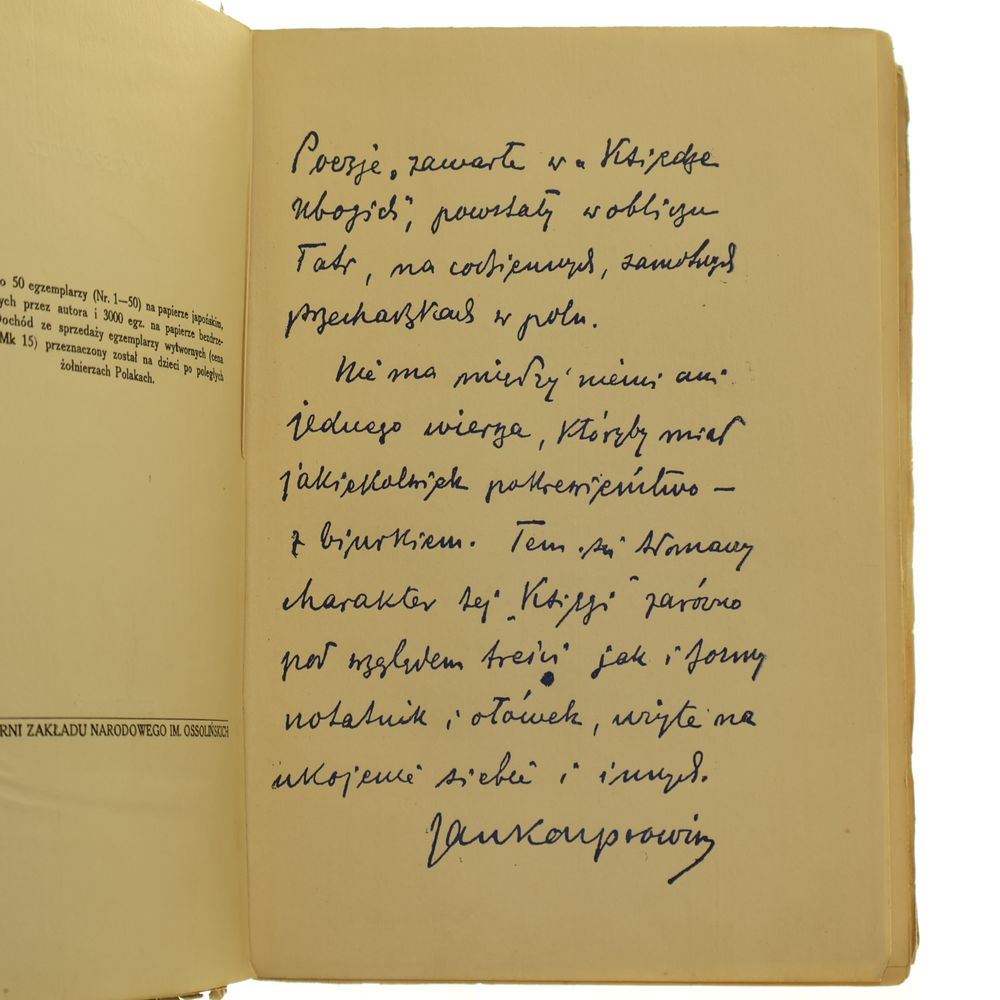 o 50 egzemplarzy (Nr. 1—50) na papierze japońskim,
ych przez autora i 3000 egz. na papierze bezdrze-
Dochód ze sprzedaży egzemplarzy wytwornych (cena
Mk 15) przeznaczony został na dzieci po poległych
żołnierzach Polakach.
RNI ZAKŁADU NARODOWEGO IM. OSSOLIŃSKICH
Poezje, zawarte w „Księdze
Ubogich”, powstały w obliczu
Tatr, na codziennych, samotnych
przechadzkach w polu.
Nie ma między niemi ani
jednego wiersza, któryby miał
jakiekolwiek pokrewieństwo —
z biurkiem. Tem się tłomaczy
charakter tej „Księgi” zarówno
pod względem treści jak i formy
notatnik i ołówek, użyte na
ukojenie siebie i innych.
Jan Kasprowicz